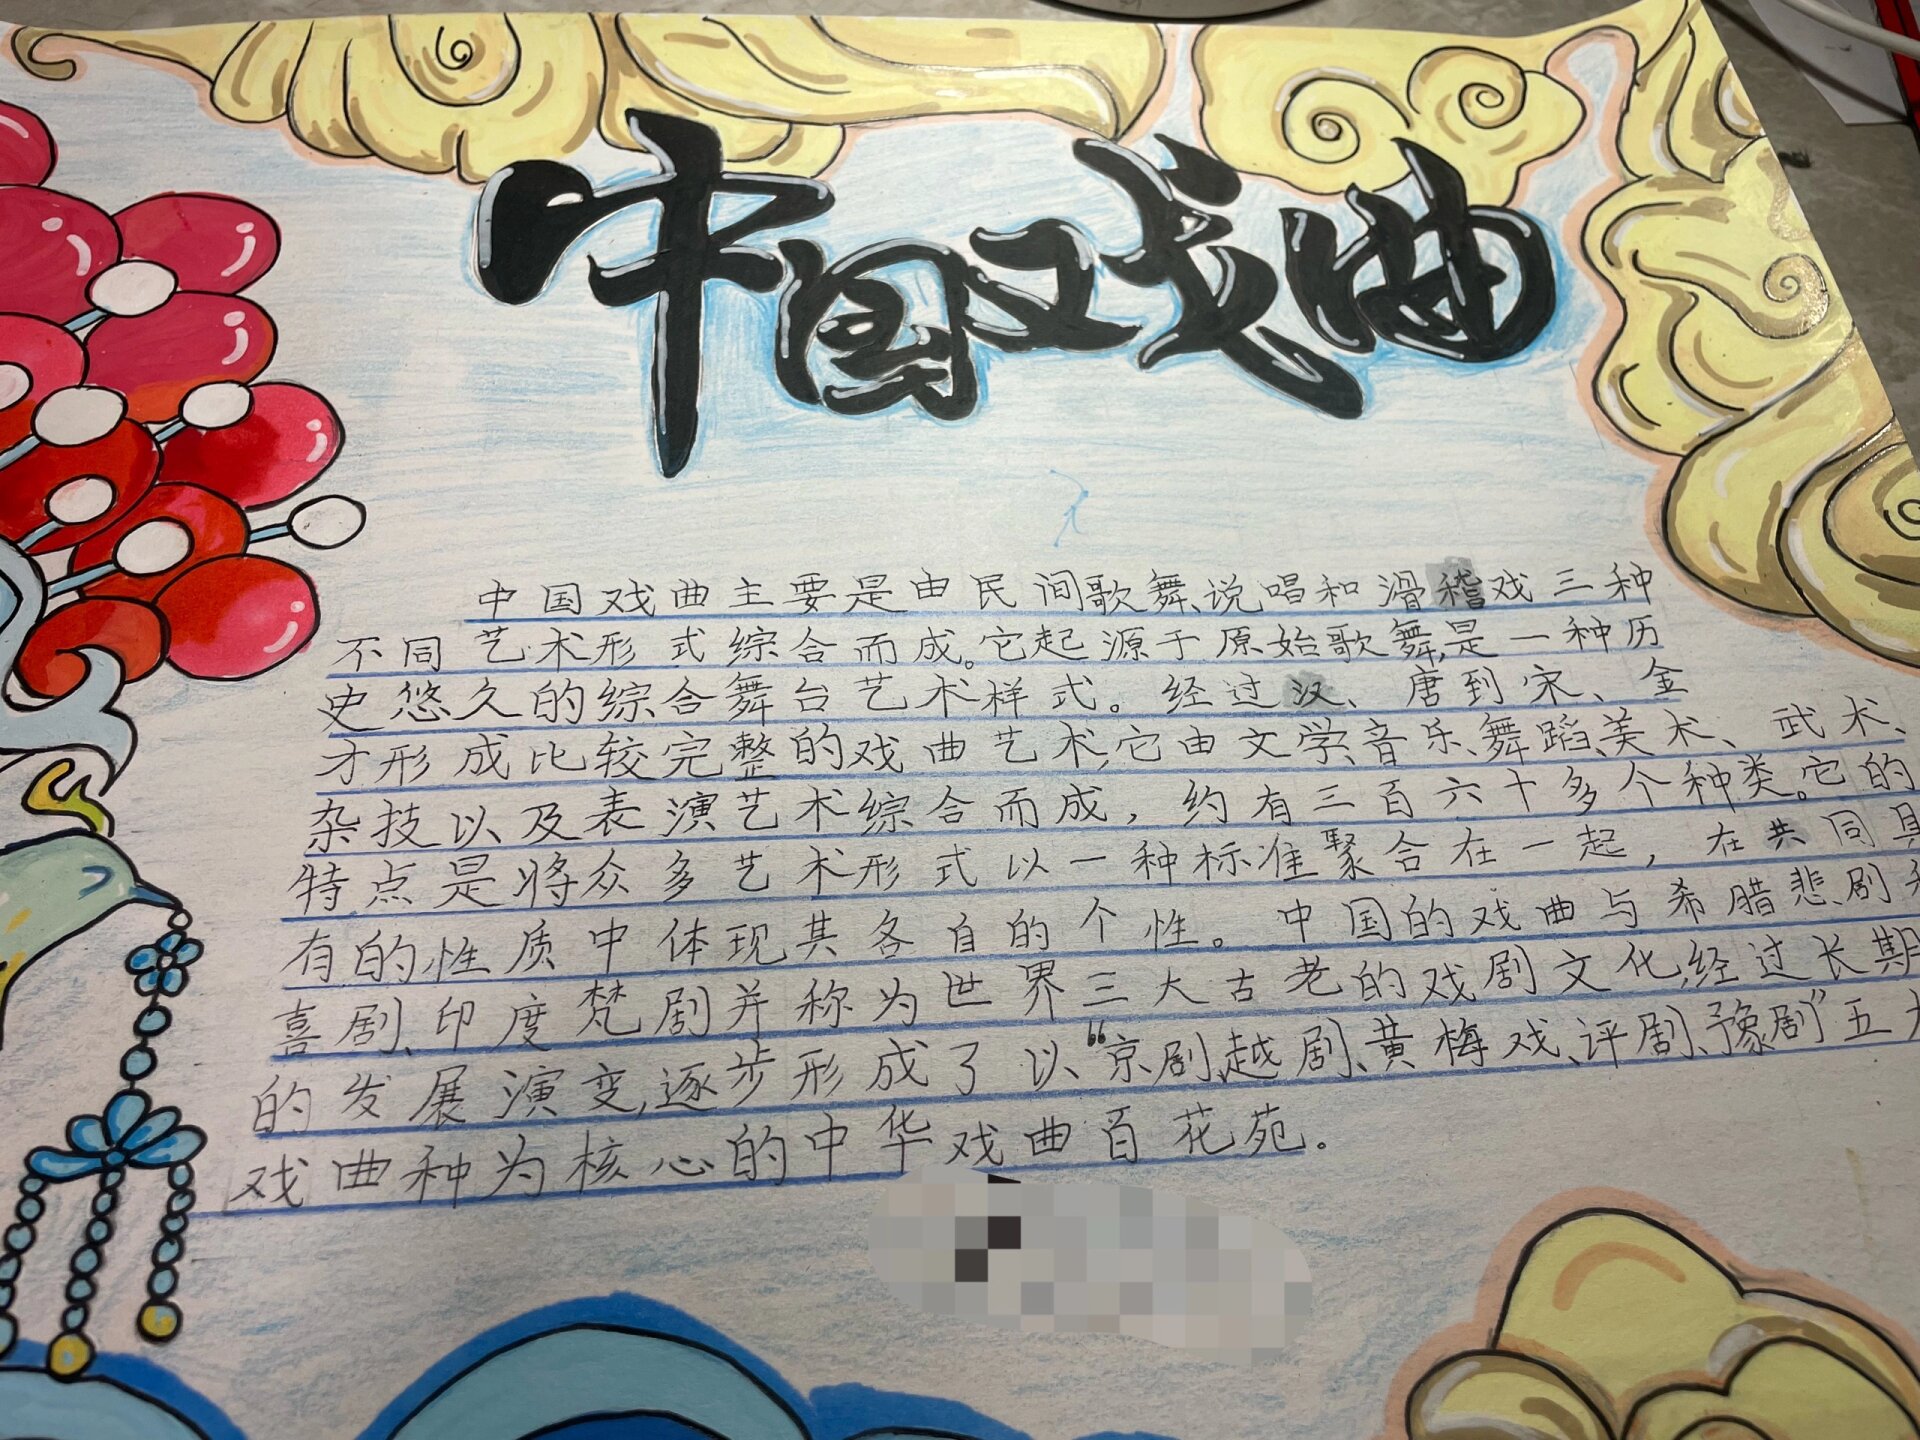 中国戏曲
中国戏曲主要是由民间歌舞、说唱和滑稽戏三种
不同艺术形式综合而成。它起源于原始歌舞,是一种历
史悠久的综合舞台艺术样式。经过汉、唐到宋、金
才形成比较完整的戏曲艺术,它由文学、音乐、舞蹈、美术、武术、
杂技以及表演艺术综合而成，约有三百六十多个种类。它的
特点是将众多艺术形式以一种标准聚合在一起，在共同具
有的性质中体现其各自的个性。中国的戏曲与希腊悲剧和
喜剧、印度梵剧并称为世界三大古老的戏剧文化,经过长期
的发展演变,逐步形成了以“京剧、越剧、黄梅戏、评剧、豫剧”五大
戏曲种为核心的中华戏曲百花苑。